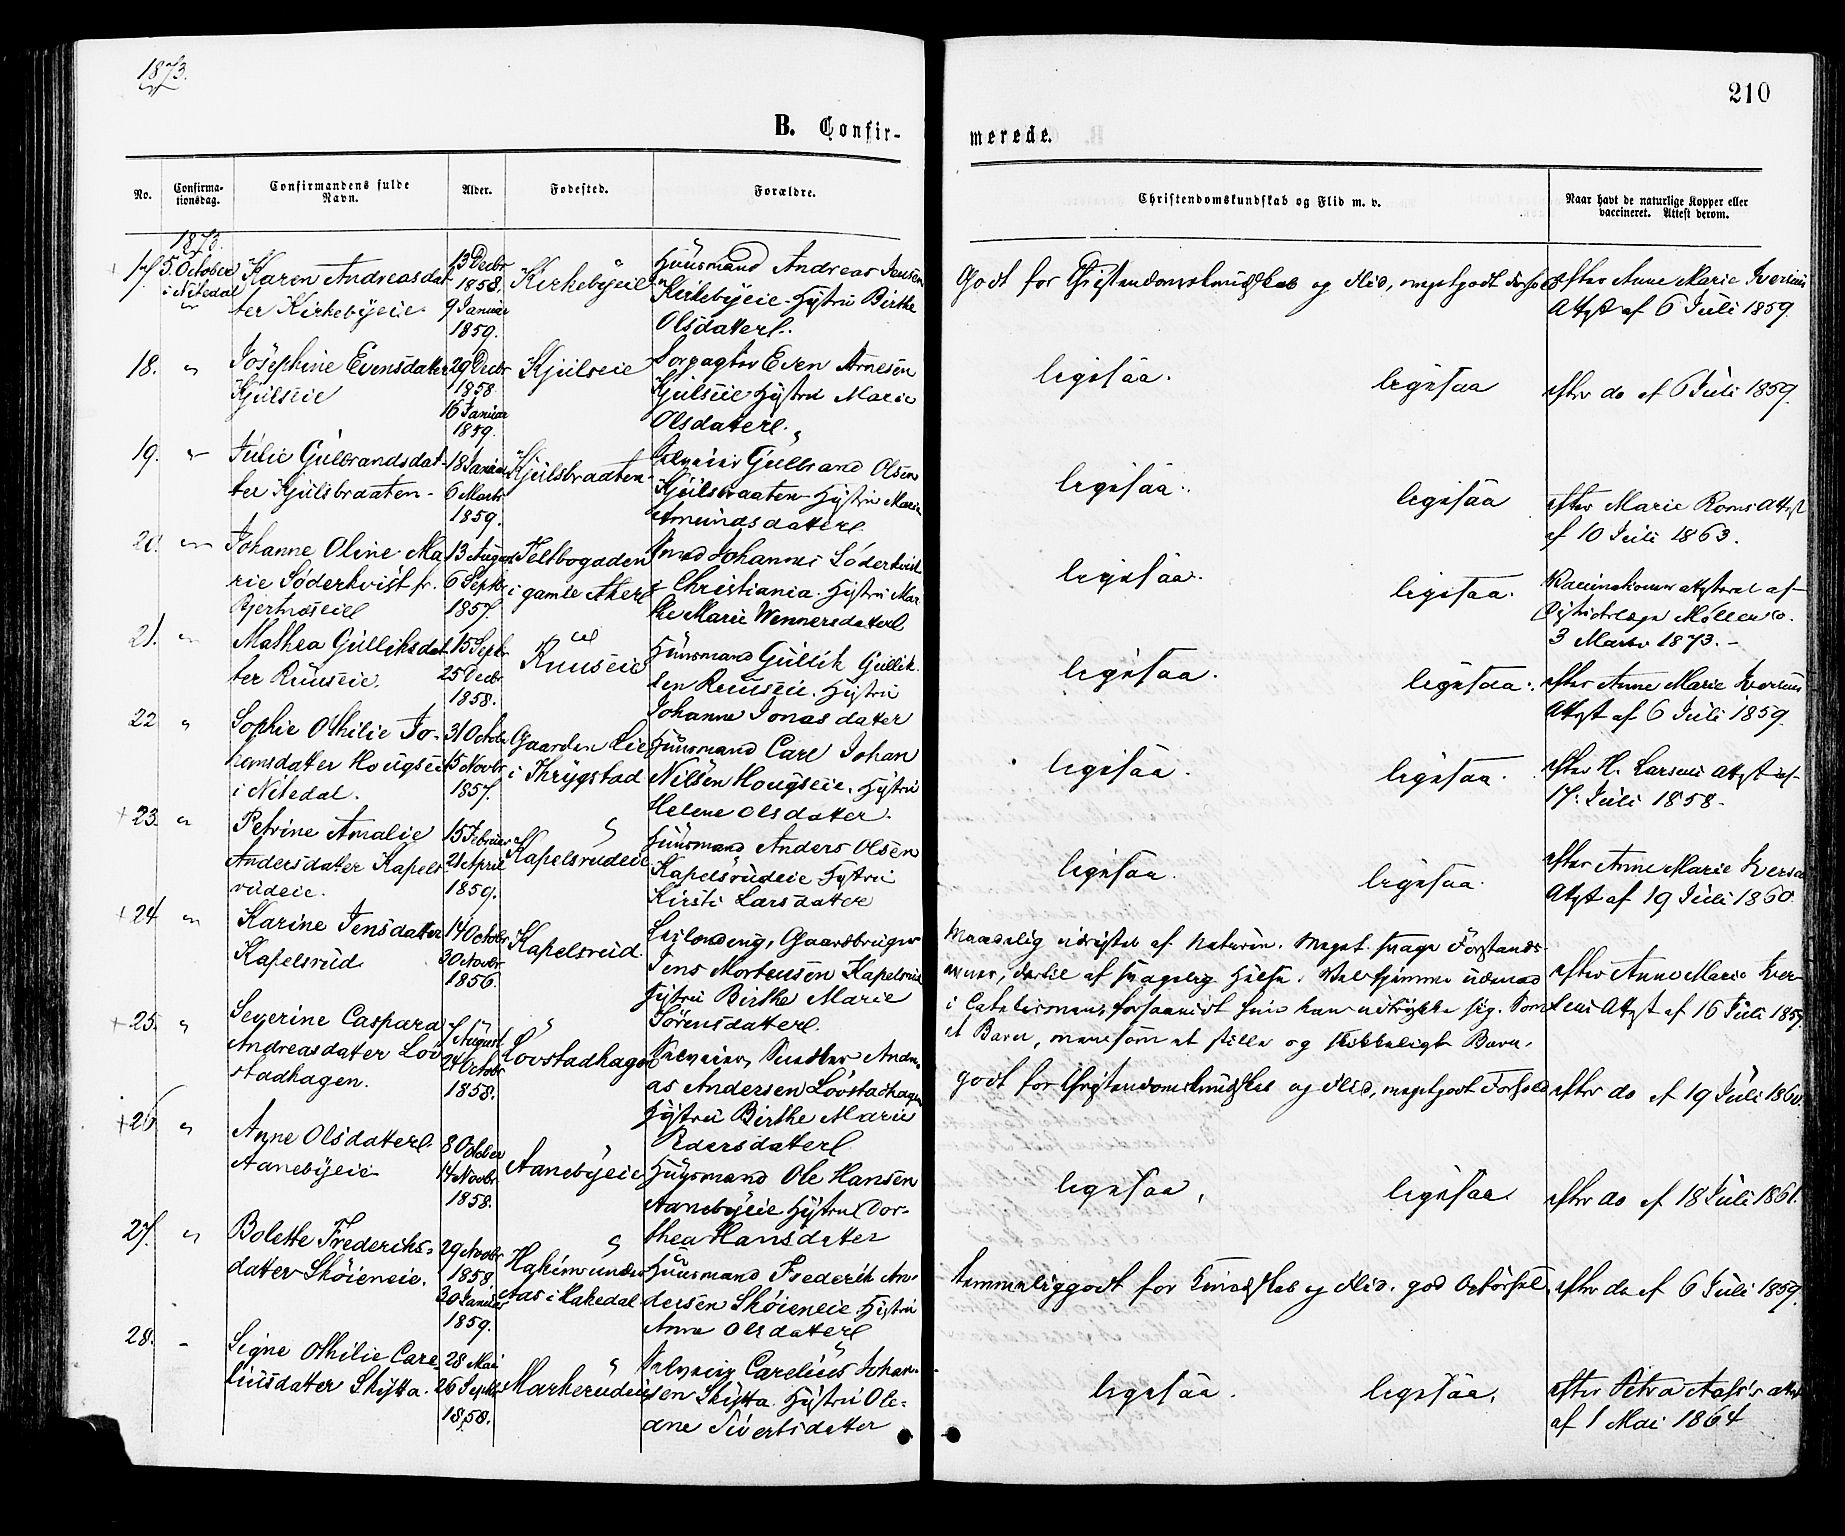 1873.
210
B. Confir-
merede.
No.
Confirma-
tionsdag.
Confirmandens fulde
Navn.
Alder.
Fødested.
Forældre.
Christendomskundskab og Flid m. v.
Naar havt de naturlige Kopper eller
vaccineret. Attest derom.
1873.
17. 5. October
i Nitedal
Karen Andreasdat
ter Kirkebyeie
13 Decbr
1858.
9 Januar
1859.
Kirkebyeie
Huusmand Andreas Jensen
Kirkebyeie. Hustru Birthe
Olsdatter.
Godt for Christendomskundskab og Flid, megetgodt Forhold
efter Anne Marie Iversens
Attest af 6 Juli 1859.
18. "
Josephine Evensdatter
Kjulseie
29 Decbr
1858.
16 Januar
1859.
Kjulseie
Forpagter Even Arnesen
Kjulseie Hustru Marie
Olsdatter.
ligesaa.
ligesaa
efter do af 6 Juli 1859.
19. "
Julie Gulbrandsdat-
ter Kjulsbraaten-
18 Januar
6 Marts
1859.
Kjulsbraaten
Selveier Gulbrand Olsen
Kjulsbraaten Hustru Maren
Amundsdatter
ligesaa.
ligesaa
efter Marie Roms Attest
af 10 Juli 1863.
20. "
Johanne Oline Ma
rie Söderkvist fr.
Bjertnæseie
13 August
6 Septbr
1857.
Teltbogaden
i gamle Aker
Smed Johannes Söderkvist
i Christiania. Hustru Mar
the Marie Wennersdatter
ligesaa.
ligesaa.
Vaccinationen attesteret af
Districtslæge Möller
3 Marts 1873.-
21. "
Mathea Gulliksdat
ter Ruuseie.
15 Septbr
25 Decbr
1858.
Ruuseie
Huusmand Gullik Gullik
sen Ruuseie. Hustru
Johanne Jonasdatter
ligesaa.
ligesaa.
efter Anne Marie Iversens
Attest af 6 Juli 1859.
22 "
Sophie Othilie Jo-
hansdatter Hougseie
i Nitedal.
31 Octobr
15 Novbr
1857.
Gaarden Lie
i Thrygstad
Huusmand Carl Johan
Nilsen Hougseie. Hustru
Helene Olsdatter.
ligesaa.
ligesaa.
efter H. Larsens Attest af
17. Juli 1858.
+ 23. "
Petrine Amalie
Andersdatter Kapels
rudeie.
15 Februar
21 April
1859.
Kapelsrudeie
Huusmand Anders Olsen
Kapelsrudeie Hustru
Kirsti Larsdatter
ligesaa.
ligesaa.
efter Anne Marie Iversens
Attest af 19 Juli 1860.
+ 24. "
Karine Jensdatter
Kapelsrud
14 Octobr
30 Novbr
1856.
Kapelsrud.
Leilænding, Gaardbruger
Jens Mortensen Kapelsrud
Hustru Birthe Marie
Sörensdatter.
Maadelig udrustet af Naturen. Meget svage Forstands-
evner, dertil af svagelig Helse. Vel hjemme udenad
i Catechismen, forsaavidt hun kan udtrykke sig. Som
et Barn, men som et stille og skikkeligt Barn.
efter Anne Marie Iver-
sens Attest af 16 Juli 1859.
+ 25. "
Severine Caspara
Andreasdatter Löv
stadhagen.
7 August
24 Octobr
1858.
Lövstadhagen
Selveier, Snedker Andre
as Andersen Lövstadhagen
Hustru Birthe Marie
Pedersdatter
godt for Christendomskundskab og Flid, megetgodt Forhold
efter do af 19 Juli 1860.
+ 26 "
Anne Olsdatter
Aanebyeie
8 October
14 Novbr
1858.
Aanebyeie
Huusmand Ole Hansen
Aanebyeie Hustru Dor-
thea Hansdatter
ligesaa,
ligesaa
efter do af 18 Juli 1861.
27. "
Bolette Frederiks-
datter Sköieneie.
29 Novbr
1858.
30 Januar
1859.
Hakim under
Aas i Hakedal
Huusmand Frederik An-
dersen Sköieneie Hustru
Anne Olsdatter
temmeliggodt for Kundskab og Flid. god Opförsel.
efter do af 6 Juli 1859.
28. -
Signe Othilie Care-
liusdatter Skytta.
28 Mai
26 Septbr
1858.
Markerudeie
Selveier Carelius Johan-
sen Skytta. Hustru Ole-
ane Sivertsdatter
ligesaa.
ligesaa.
efter Petra Aas's attest
af 1 Mai 1864